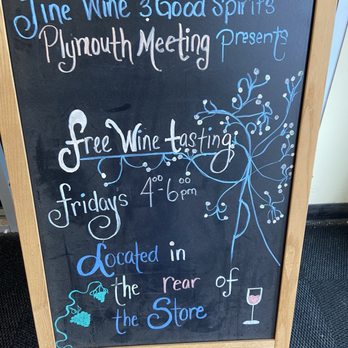 Fine Wine & Good Spirits
Plymouth Meeting Presents
free Wine tasting
fridays 4⁰⁰-6⁰⁰pm
Located in
the rear of
the Store